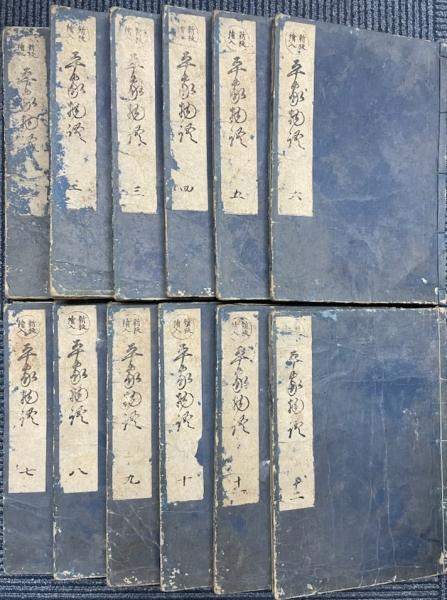 新板繪入
平家物語
新板繪入
平家物語
二
平家物語
三
新板繪入
平家物語
四
新板繪入
平家物語
五
新板繪入
平家物語
六
新板繪入
平家物語
七
新板繪入
平家物語
八
新板繪入
平家物語
九
新板繪入
平家物語
十
平家物語
十一
平家物語
十二